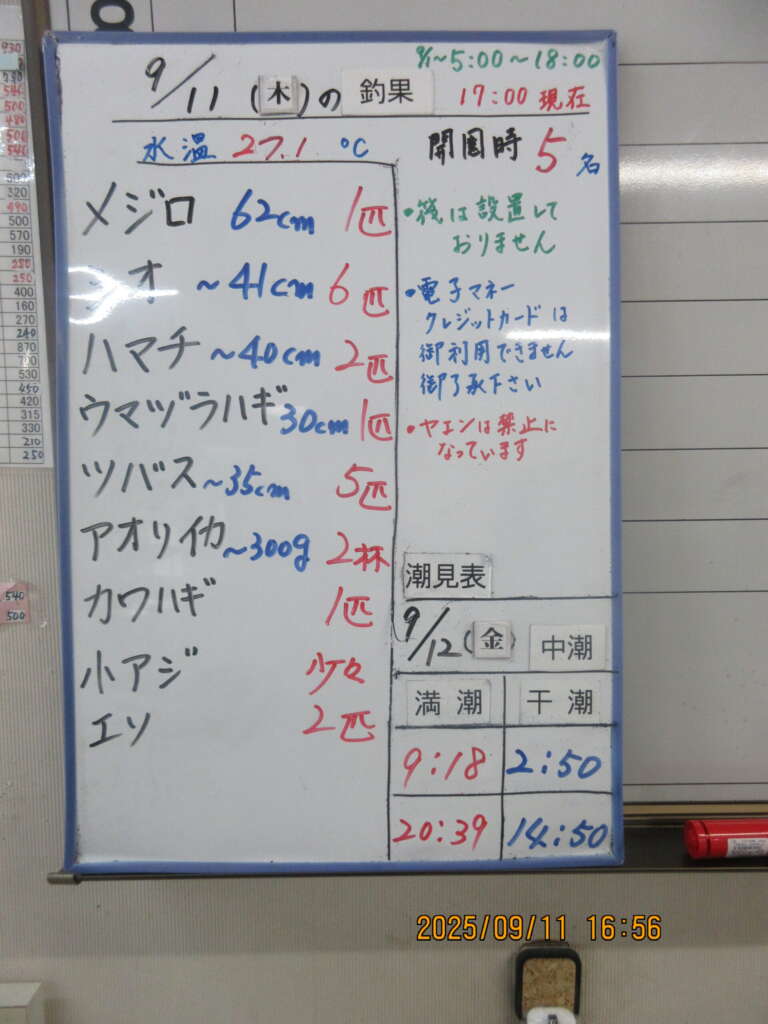 9/1~5:00~18:00
9/11(木)の 釣果 17:00 現在
水温 27.1 ℃
開園時 5名
メジロ 62cm 1匹
シオ ~41cm 6匹
ハマチ ~40cm 2匹
ウマヅラハギ 30cm 1匹
ツバス ~35cm 5匹
アオリイカ ~300g 2杯
カワハギ 1匹
小アジ 少々
エソ 2匹
・筏は設置して
おりません
・電子マネー
クレジットカードは
御利用できません
御了承下さい
・ヤエンは禁止に
なっています
潮見表
9/12(金) 中潮
満潮 干潮
9:18 2:50
20:39 14:50
500
320
490
500
570
190
280
250
400
160
270
240
870
700
530
450
420
315
330
210
250
540
500
2025/09/11 16:56